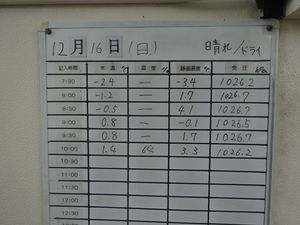 12月16日(日) 晴れ/ドライ
記入時間 気温 ℃ 湿度 % 路面温度 ℃ 気圧 hPa
7:30 -2.4 — -3.4 1026.2
8:00 -1.2 — 1.7 1026.7
8:30 -0.5 — 4.1 1026.7
9:00 0.8 — -0.1 1026.5
9:30 0.8 — 1.7 1026.7
10:00 1.4 64 3.3 1026.2
10:30
11:00
11:30
12:00
12:30